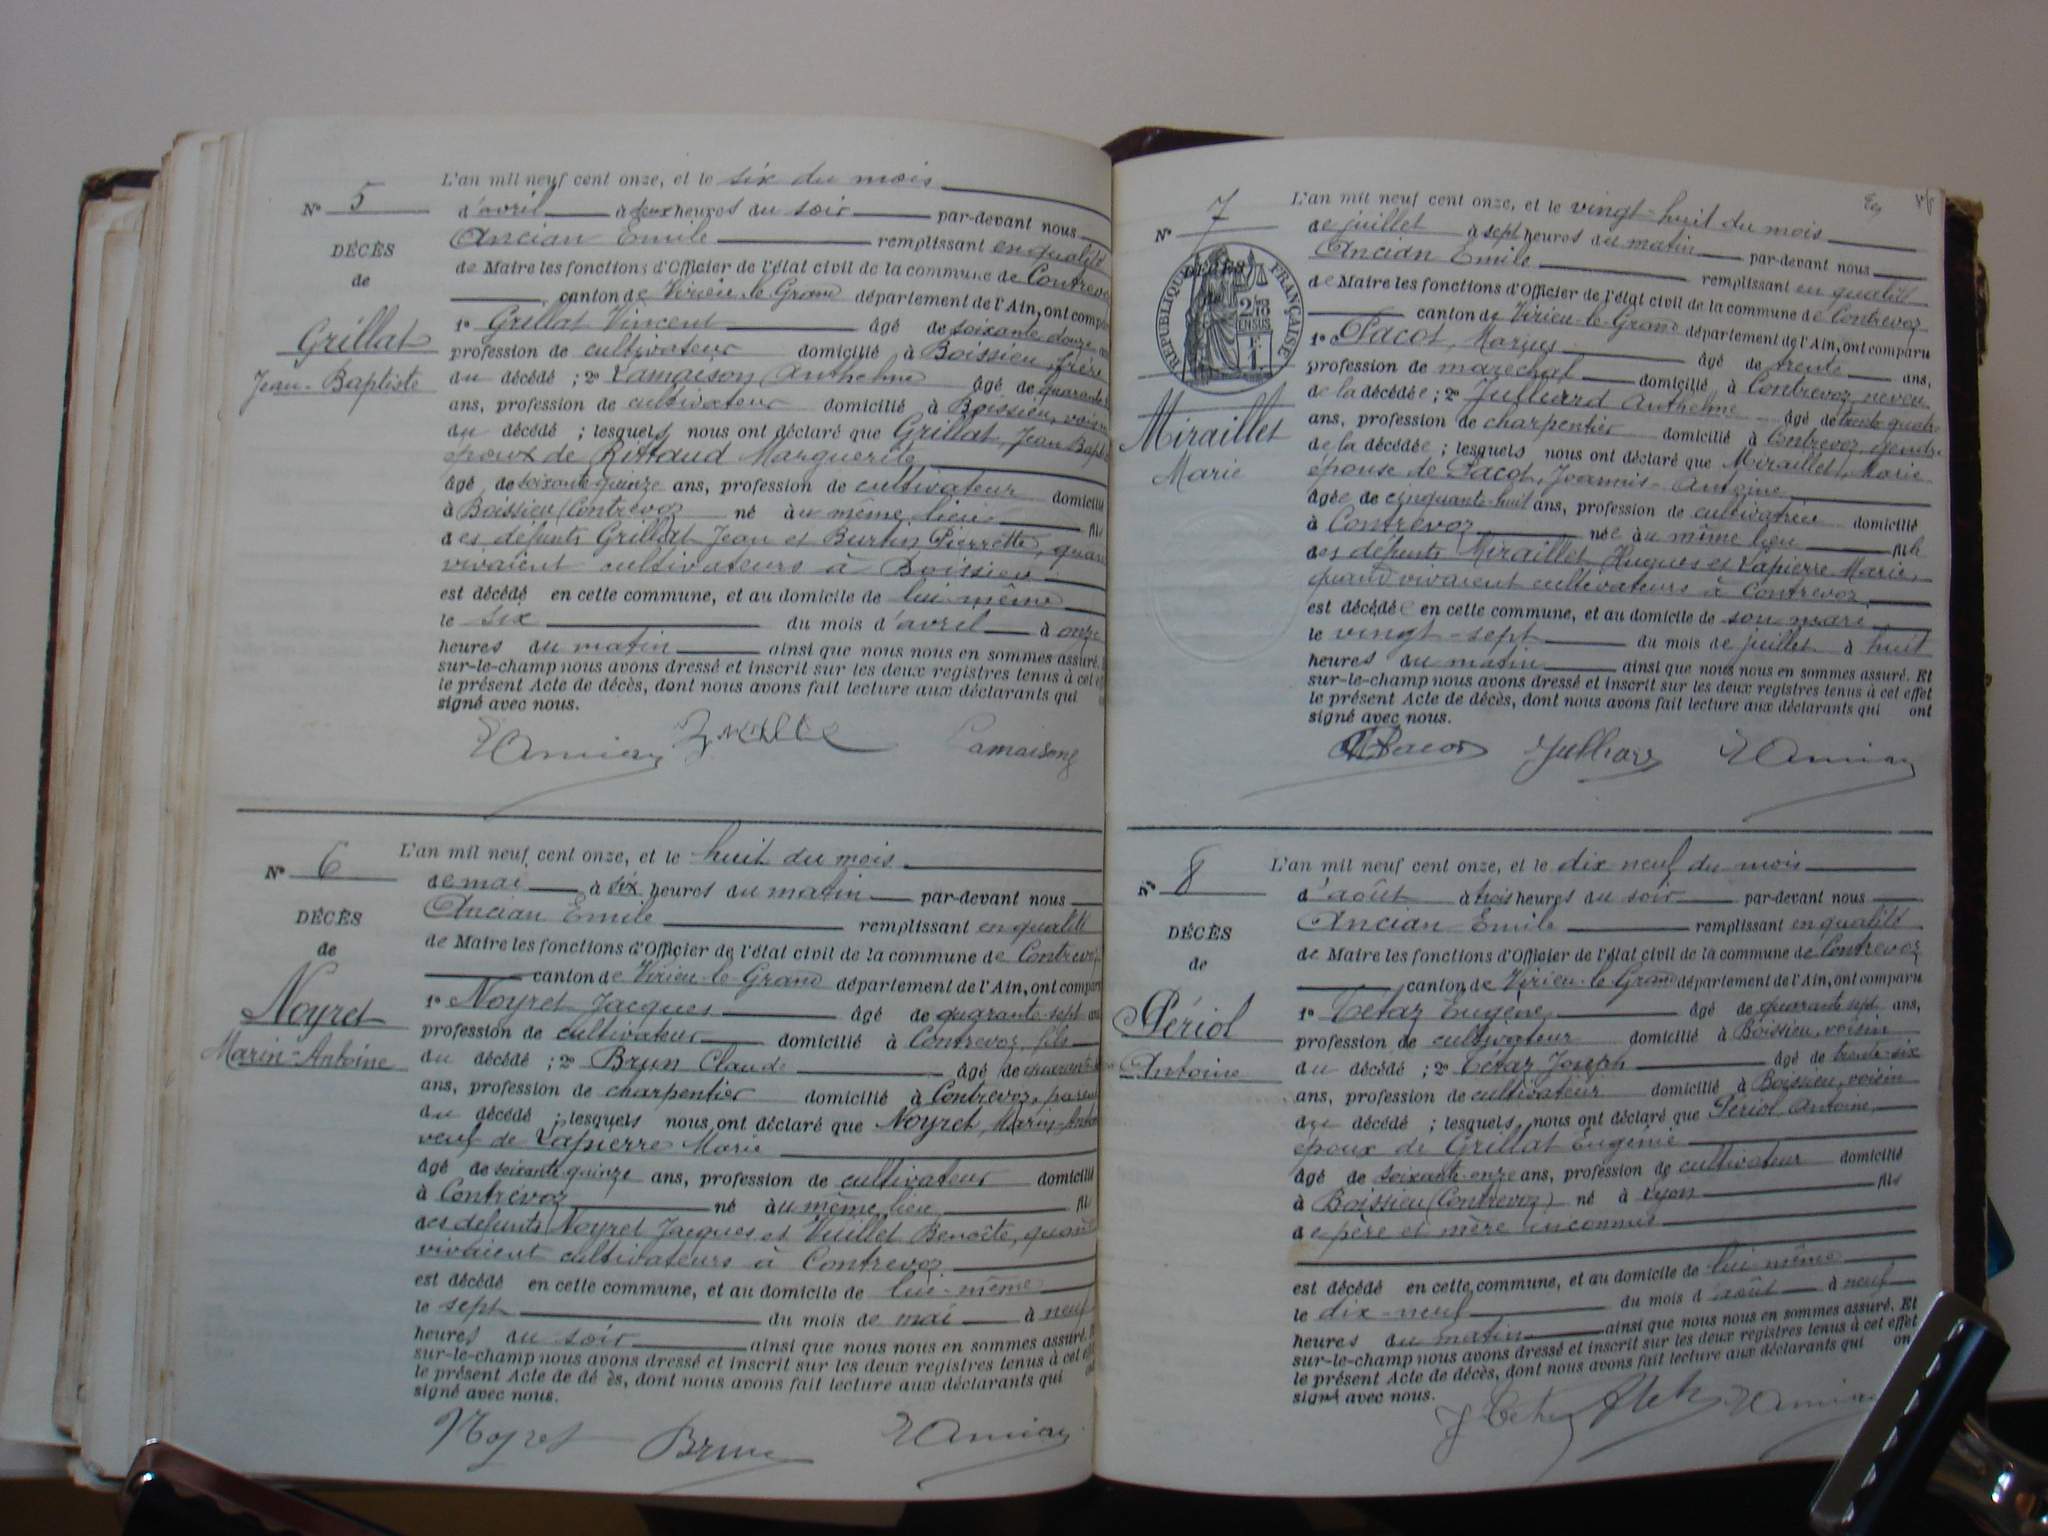 N° 5
DÉCÈS
de
Grillat
Jean-Baptiste
L'an mil neuf cent onze, et le six du mois
d'avril à deux heures du soir par-devant nous
Ancian Emile remplissant en qualité
de Maire les fonctions d'Officier de l'état civil de la commune de Contrevoz
canton de Virieu-le-Grand département de l'Ain, ont comparu
1° Grillat Vincent âgé de soixante-douze
profession de cultivateur domicilié à Boissieu, frère
du décédé ; 2° Lamaison Anthelme âgé de quarante
ans, profession de cultivateur domicilié à Boissieu, voisin
du décédé ; lesquels nous ont déclaré que Grillat, Jean-Bapt
époux de Marguerite
âgé de soixante-quinze ans, profession de cultivateur domicilié
à Boissieu (Contrevoz né au même lieu fils
des défunts Grillat Jean et Burtin Pierrette, quan
vivaient cultivateurs à Boissieu
est décédé en cette commune, et au domicile de lui-même
le six du mois d'avril à onze
heures du matin ainsi que nous nous en sommes assuré.
sur-le-champ nous avons dressé et inscrit sur les deux registres tenus à cet ef
le présent Acte de décès, dont nous avons fait lecture aux déclarants qui
signé avec nous.
EAncian Lamaison
N° 6
DÉCÈS
de
Noyret
Marin-Antoine
L'an mil neuf cent onze, et le huit du mois
de mai à six heures du matin par-devant nous
Ancian Emile remplissant en qualité
de Maire les fonctions d'Officier de l'état civil de la commune de Contrevoz
canton de Virieu-le-Grand département de l'Ain, ont comparu
1° Noyret Jacques âgé de quarante-sept ans
profession de cultivateur domicilié à Contrevoz, fils
du décédé ; 2° Brun Claude âgé de quarante
ans, profession de charpentier domicilié à Contrevoz, parent
du décédé ; lesquels nous ont déclaré que Noyret, Marin-Antoi
veuf de Lapierre Marie
âgé de soixante-quinze ans, profession de cultivateur domicilié
à Contrevoz né au même lieu fils
des défunts Noyret Jacques et Vuillet Benoîte, quand
vivaient cultivateurs à Contrevoz
est décédé en cette commune, et au domicile de lui-même
le sept du mois de mai à neuf
heures du soir ainsi que nous nous en sommes assuré. E
sur-le-champ nous avons dressé et inscrit sur les deux registres tenus à cet ef
le présent Acte de dé ès, dont nous avons fait lecture aux déclarants qui ont
signé avec nous.
Noyret Brun EAncian
N° 7
RÉPUBLIQUE FRANÇAISE
DÉCÈS
2/10 EN SUS
1 F.
Miraillet
Marie
L'an mil neuf cent onze, et le vingt-huit du mois
de juillet à sept heures du matin par-devant nous
Ancian Emile remplissant en qualité
de Maire les fonctions d'Officier de l'état civil de la commune de Contrevoz
canton de Virieu-le-Grand département de l'Ain, ont comparu
1° Pacot, Marius âgé de trente ans,
profession de maréchal domicilié à Contrevoz, neveu
de la décédée ; 2° Julliard Anthelme âgé de trente-quatre
ans, profession de charpentier domicilié à Contrevoz, gendre
de la décédée ; lesquels nous ont déclaré que Miraillet, Marie
épouse de Pacot, Joannis-Antoine
âgée de cinquante-huit ans, profession de cultivatrice domicilié
à Contrevoz née au même lieu fille
des défunts Miraillet Hugues et Lapierre Marie,
quand vivaient cultivateurs à Contrevoz
est décédée en cette commune, et au domicile de son mari
le vingt-sept du mois de juillet à huit
heures du matin ainsi que nous nous en sommes assuré. Et
sur-le-champ nous avons dressé et inscrit sur les deux registres tenus à cet effet
le présent Acte de décès, dont nous avons fait lecture aux déclarants qui ont
signé avec nous.
MPacot Julliard EAncian
N° 8
DÉCÈS
de
Périol
Antoine
L'an mil neuf cent onze, et le dix neuf du mois
d'août à trois heures du soir par-devant nous
Ancian Emile remplissant en qualité
de Maire les fonctions d'Officier de l'état civil de la commune de Contrevoz
canton de Virieu-le-Grand département de l'Ain, ont comparu
1° Tétaz Eugène âgé de quarante sept ans,
profession de cultivateur domicilié à Boissieu, voisin
du décédé ; 2° Tétaz Joseph âgé de trente-six
ans, profession de cultivateur domicilié à Boissieu, voisin
du décédé ; lesquels nous ont déclaré que Périol Antoine,
époux de Grillat Eugénie
âgé de soixante-onze ans, profession de cultivateur domicilié
à Boissieu (Contrevoz) né à Lyon fils
de père et mère inconnus
est décédé en cette commune, et au domicile de lui-même
le dix-neuf du mois d'août à neuf
heures du matin ainsi que nous nous en sommes assuré. Et
sur-le-champ nous avons dressé et inscrit sur les deux registres tenus à cet effet
le présent Acte de décès, dont nous avons fait lecture aux déclarants qui on
signé avec nous.
EAncian